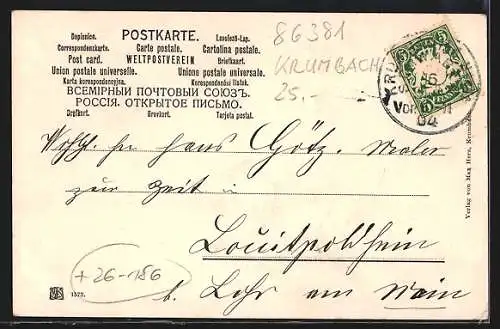 POSTKARTE.
Dopisnice. Levelező-Lap.
Correspondenzkarte. Carte postale. Cartolina postale.
Post card. WELTPOSTVEREIN Briefkaart.
Union postale universelle. Unione postale universale.
Karta korespondencyjna. Korespondenční lístek.
ВСЕМІРНЫЙ ПОЧТОВЫЙ СОЮЗЪ.
РОССІЯ. ОТКРЫТОЕ ПИСЬМО.
Brefkort. Tarjeta postal.
86381
KRUMBACH
25.-
5
16
Vor
04
Hans Götz. Maler
zur Zeit in
Louitpoldhein
b. Lohr am Main
+26-186
1573.
Verlag von Max Herz, Krumbach